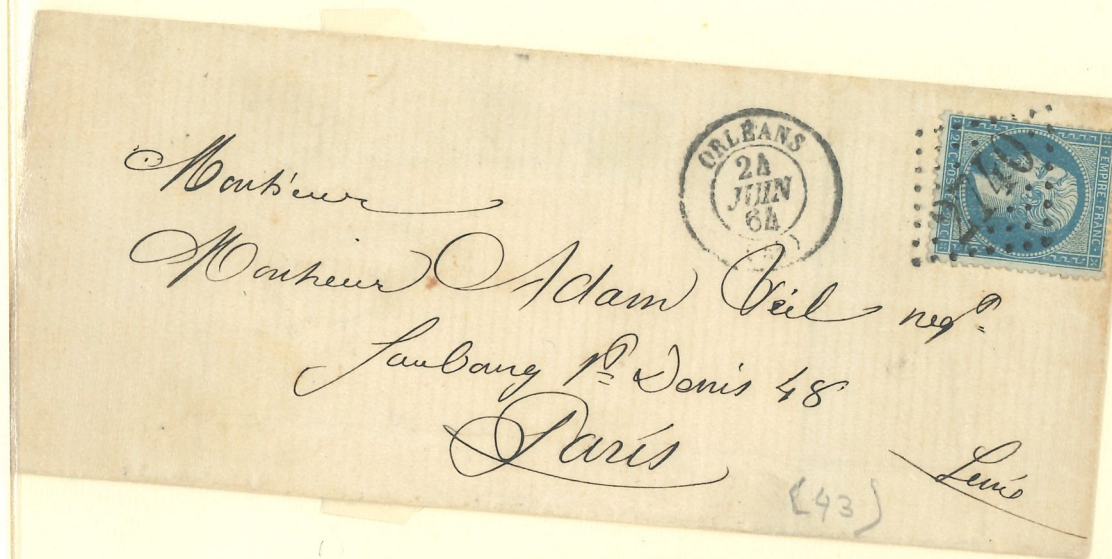 ORLÉANS
24
JUIN
64
2740
EMPIRE FRANC.
Monsieur
Monsieur Adam Veil negt
faubourg St Denis 48
Paris
(43)